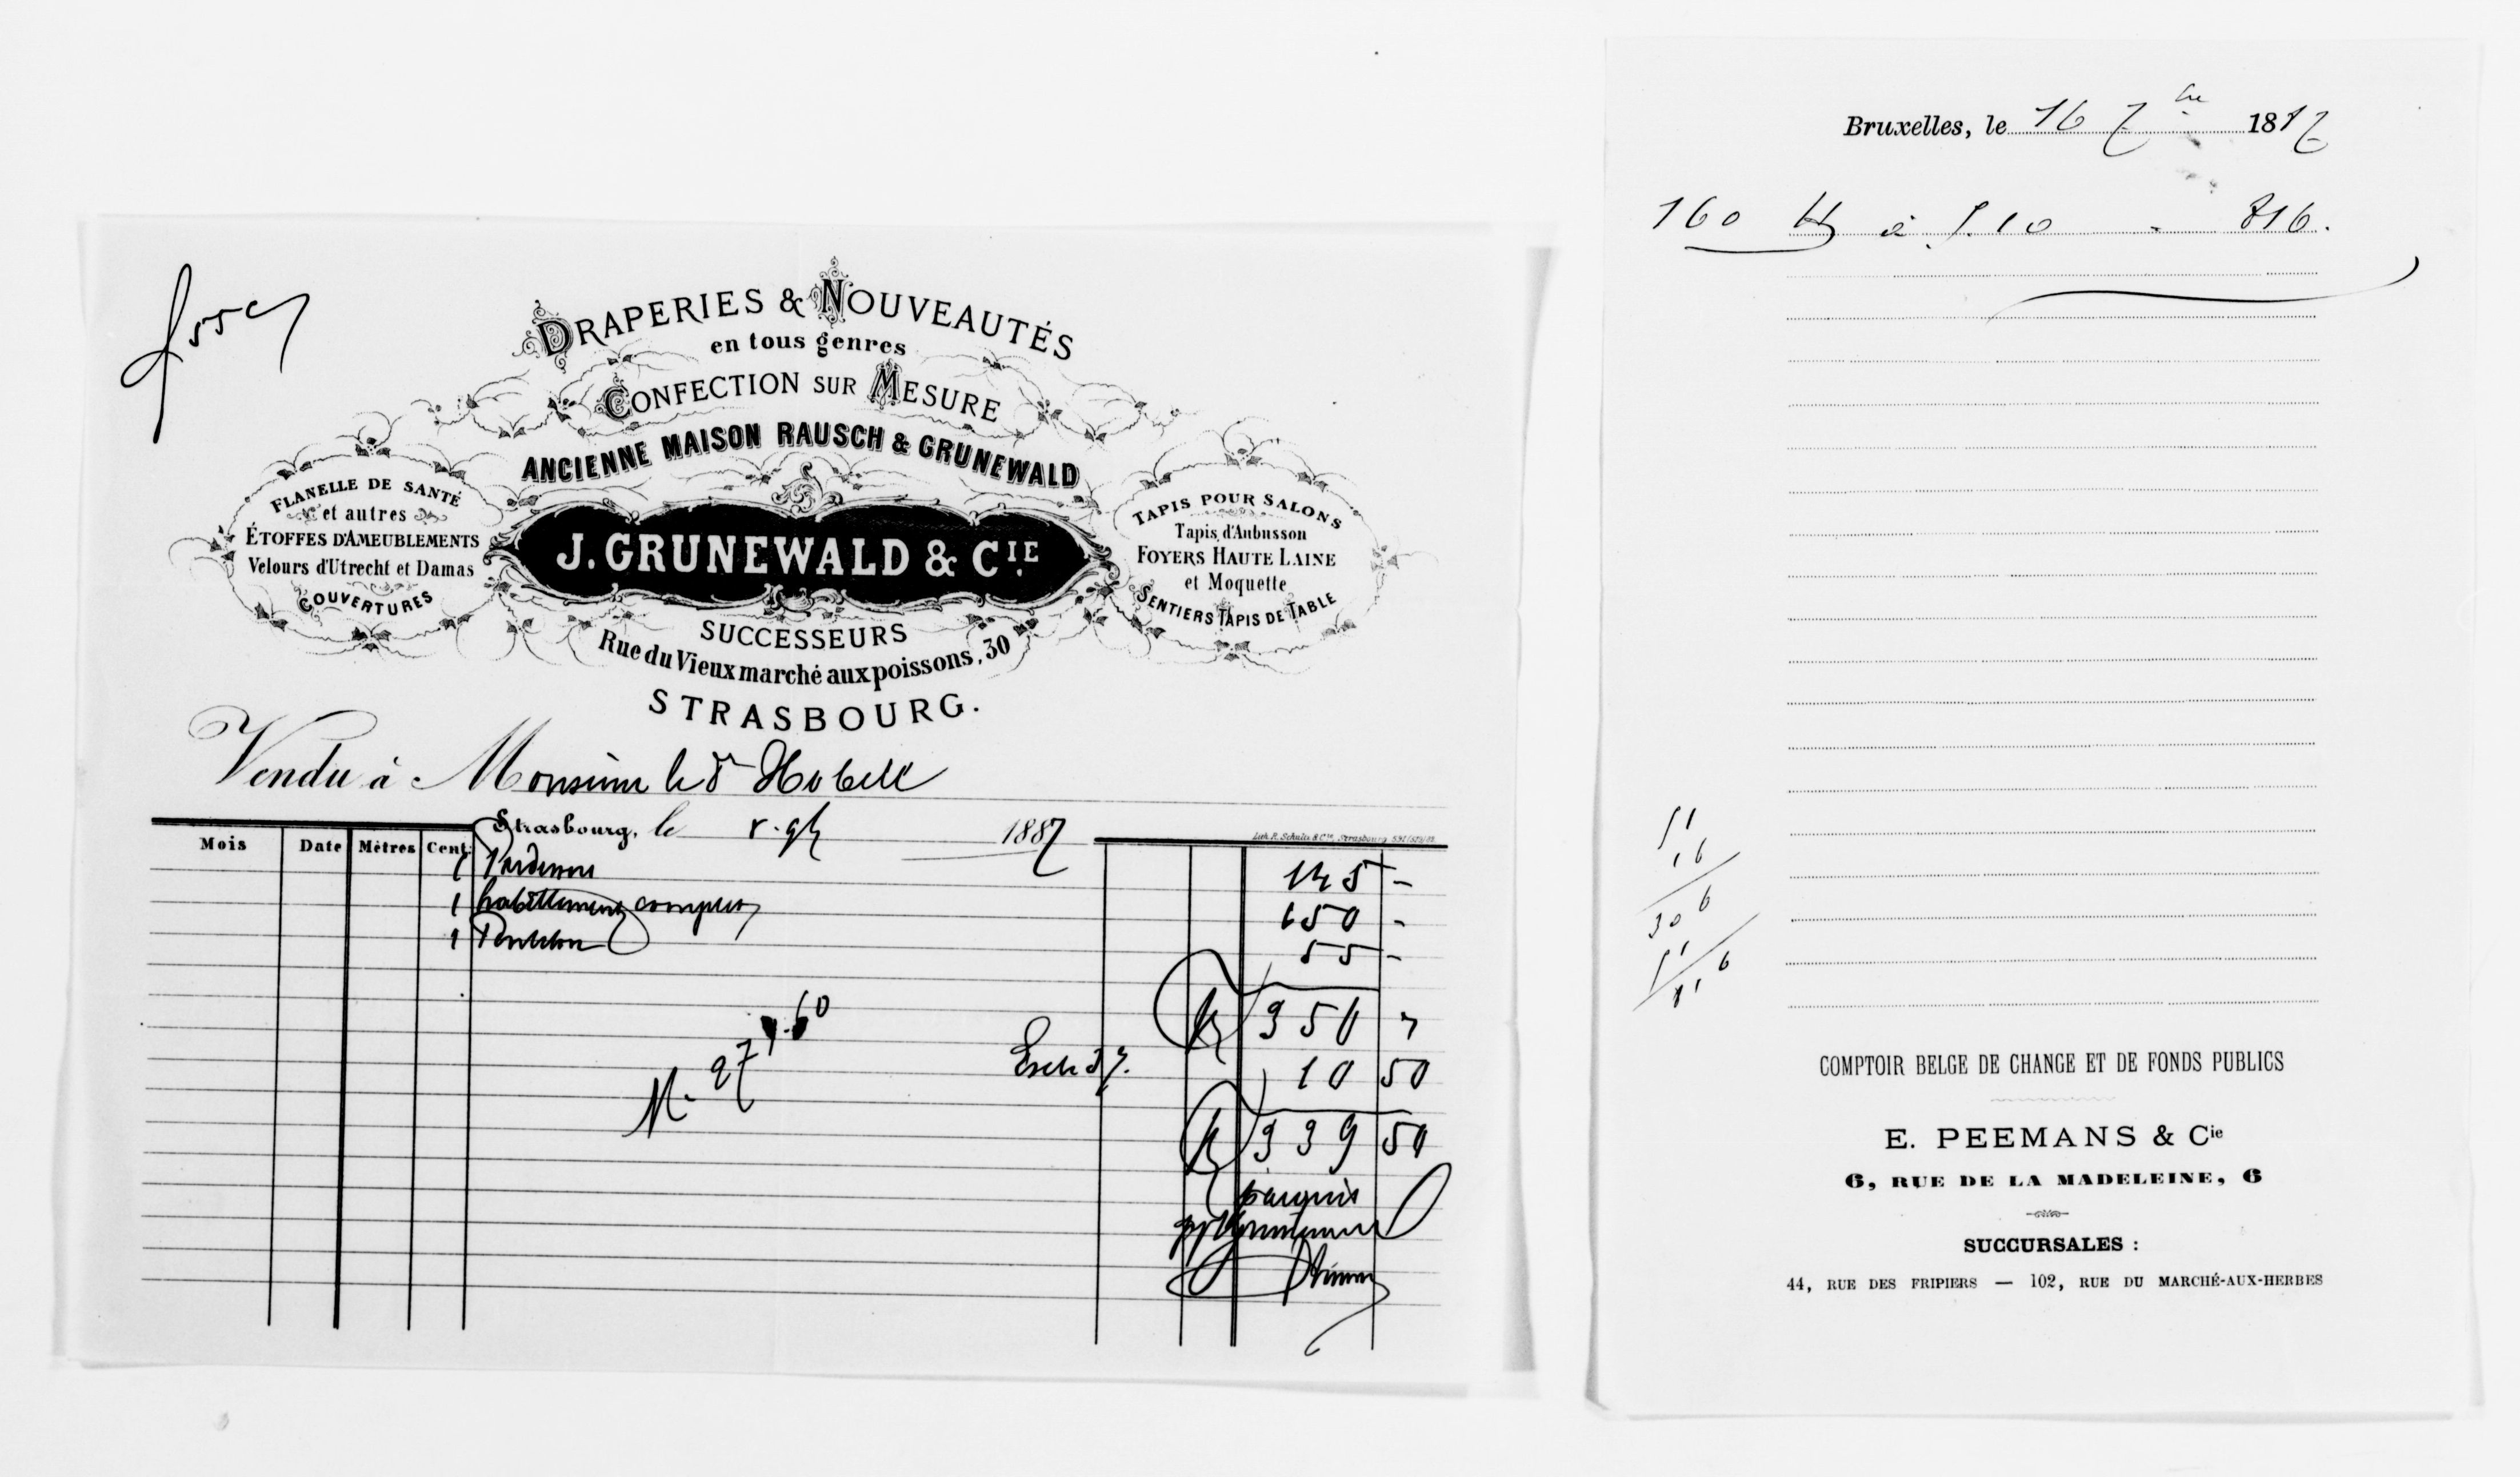 DRAPERIES & NOUVEAUTÉS
en tous genres
CONFECTION SUR MESURE
ANCIENNE MAISON RAUSCH & GRUNEWALD
FLANELLE DE SANTÉ
et autres
ÉTOFFES D'AMEUBLEMENTS
Velours d'Utrecht et Damas
COUVERTURES
J. GRUNEWALD & CIE
TAPIS POUR SALONS
Tapis d'Aubusson
FOYERS HAUTE LAINE
et Moquette
SENTIERS TAPIS DE TABLE
SUCCESSEURS
Rue du Vieux marché aux poissons, 30
STRASBOURG.
Vendu à Monsieur le
Strasbourg, le 1887
Mois Date Mètres Cent.
1 145 -
1 habillement complet 150 -
1 Pantalon 55 -
350
10 50
339 50
M. 271.60
Bruxelles, le 16 7bre 1887
160 à 5.10 - 816.
51
16
306
51
816
COMPTOIR BELGE DE CHANGE ET DE FONDS PUBLICS
E. PEEMANS & Cie
6, RUE DE LA MADELEINE, 6
SUCCURSALES :
44, RUE DES FRIPIERS — 102, RUE DU MARCHÉ-AUX-HERBES